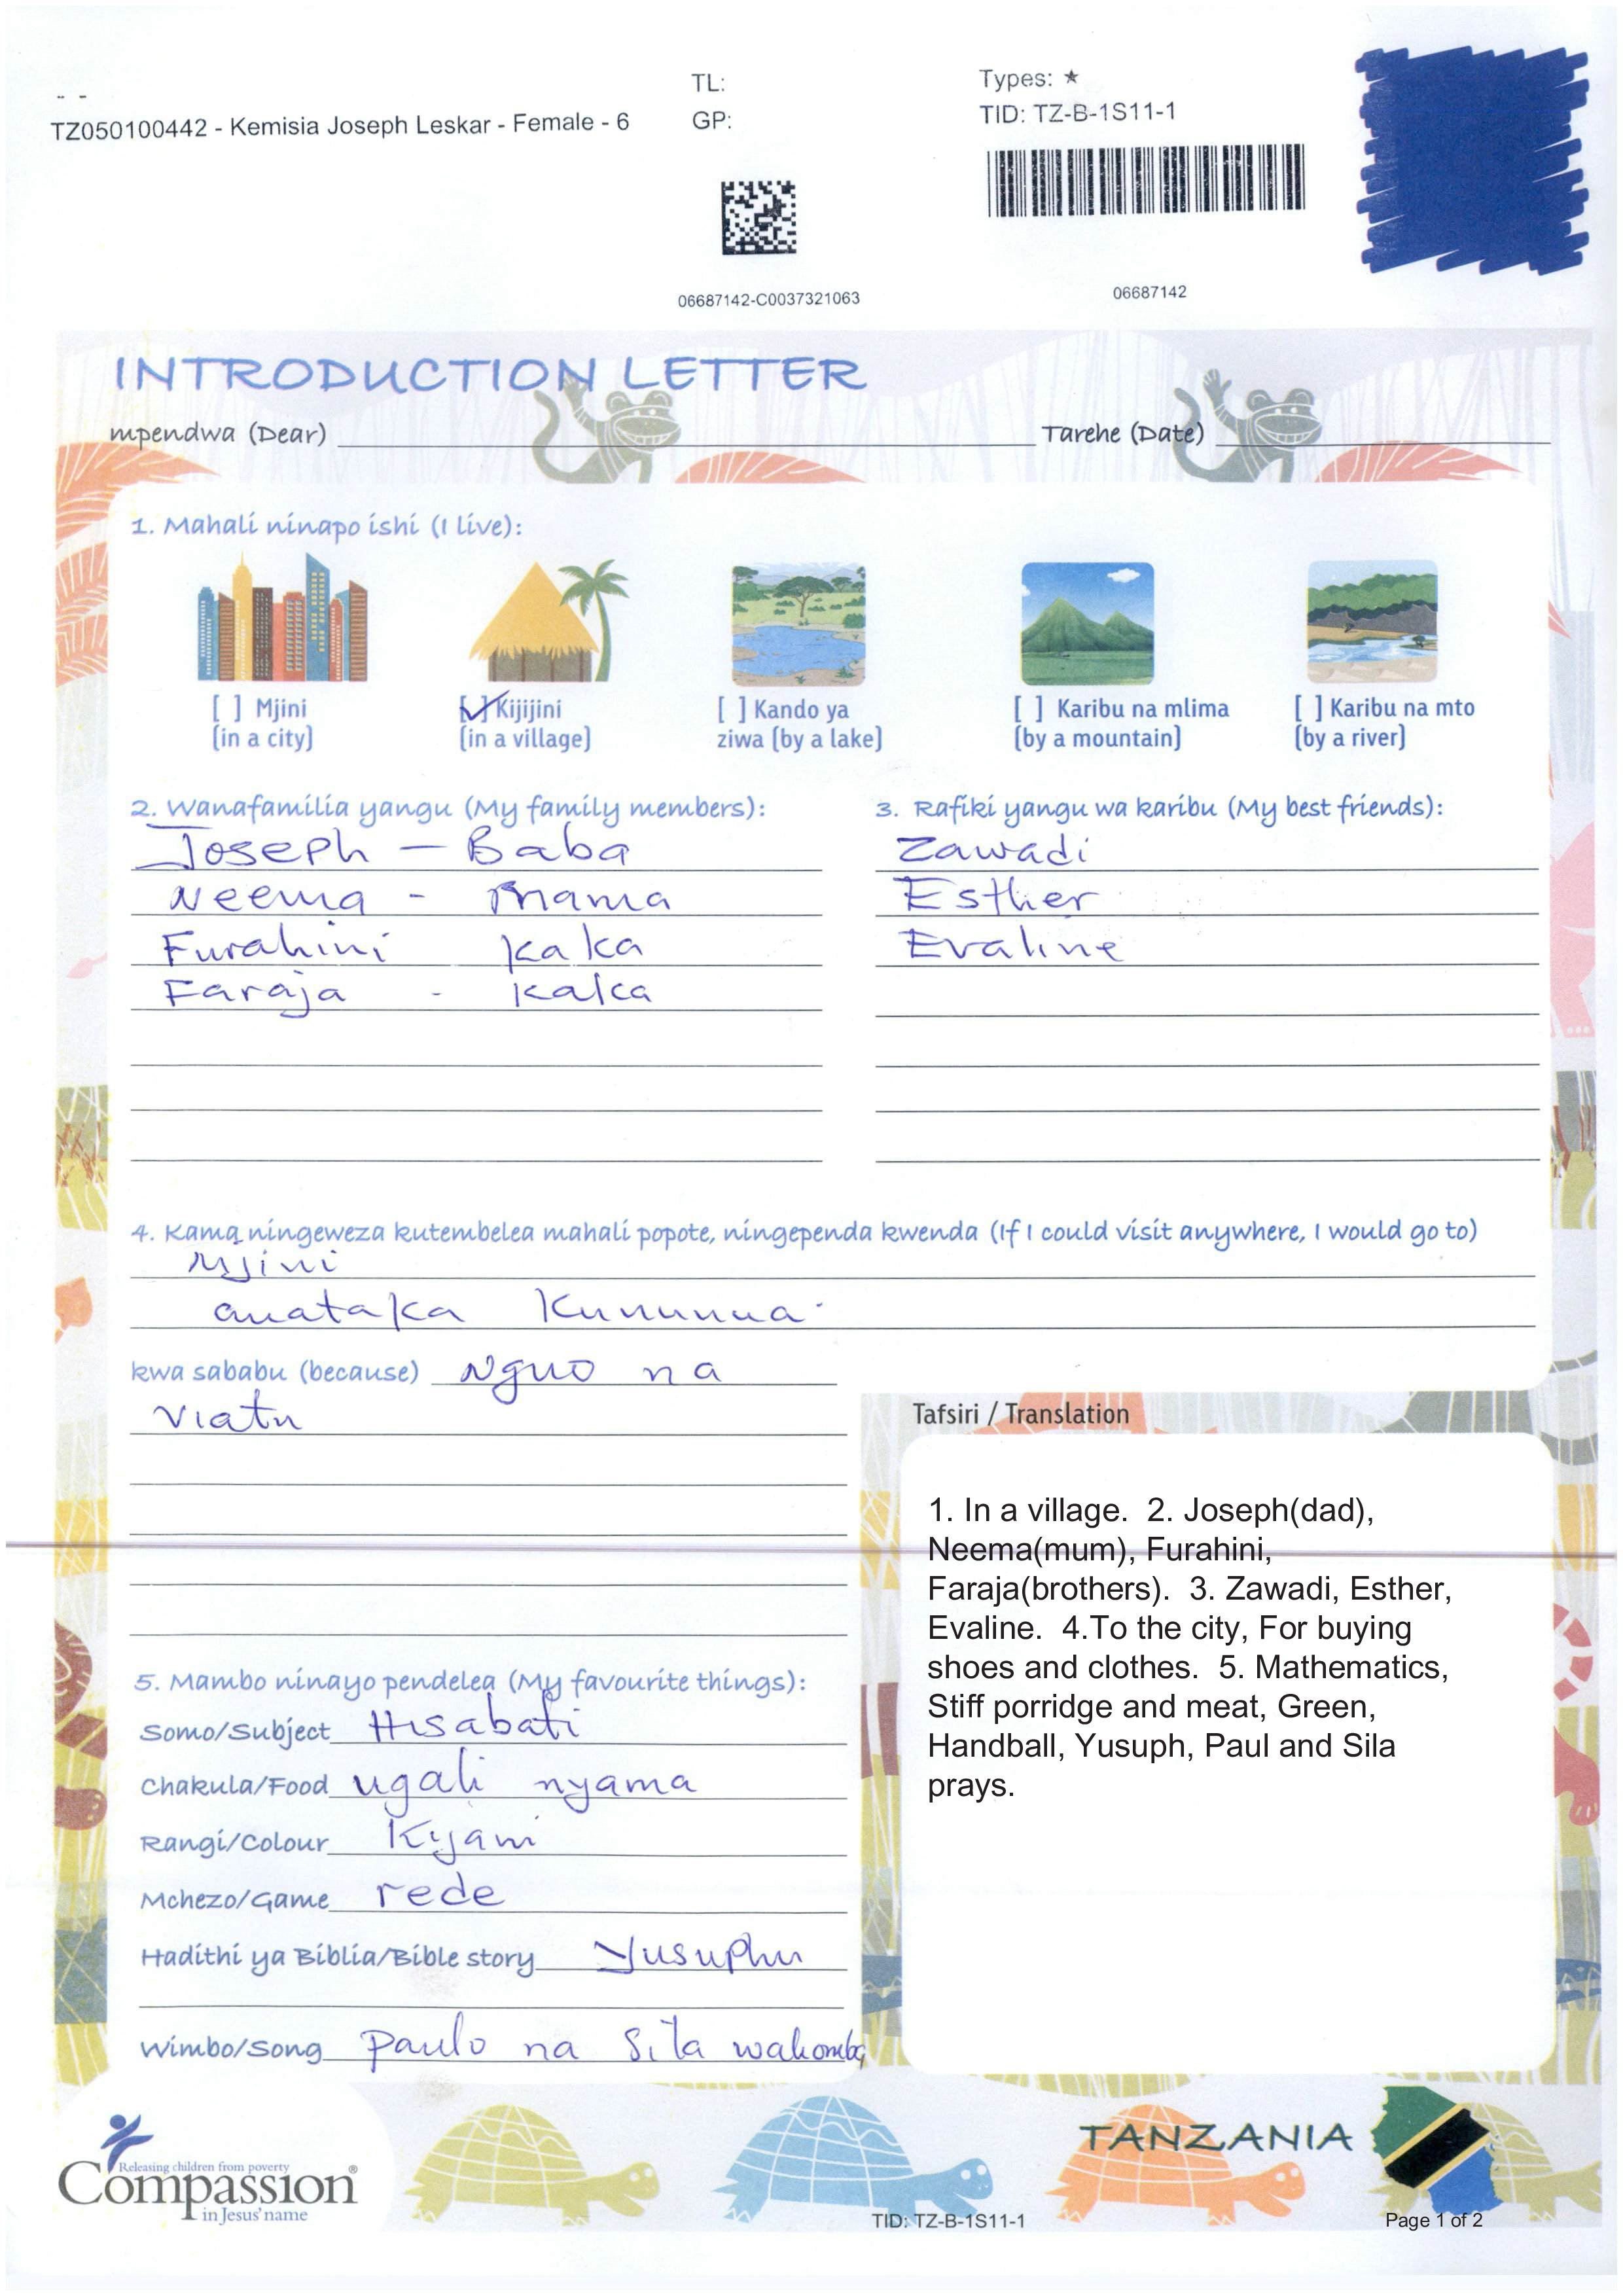 - -
TZ050100442 - Kemisia Joseph Leskar - Female - 6
TL:
GP:
Types: ★
TID: TZ-B-1S11-1
06687142-C0037321063
06687142
INTRODUCTION LETTER
mpendwa (Dear)
Tarehe (Date)
1. Mahali ninapo ishi (I live):
[ ] Mjini
(in a city)
[✓] Kijijini
(in a village)
[ ] Kando ya
ziwa (by a lake)
[ ] Karibu na mlima
(by a mountain)
[ ] Karibu na mto
(by a river)
2. Wanafamilia yangu (My family members):
Joseph – Baba
Neema - Mama
Furahini Kaka
Faraja - Kaka
3. Rafiki yangu wa karibu (My best friends):
Zawadi
Esther
Evaline
4. Kama ningeweza kutembelea mahali popote, ningependa kwenda (If I could visit anywhere, I would go to)
Mjini
anataka Kununua
kwa sababu (because) Nguo na
Viatu
5. Mambo ninayo pendelea (My favourite things):
Somo/Subject Hisabati
Chakula/Food ugali nyama
Rangi/Colour Kijani
Mchezo/Game rede
Hadithi ya Biblia/Bible story Yusuphu
Wimbo/Song Paulo na Sila wakomba
Tafsiri / Translation
1. In a village. 2. Joseph(dad),
Neema(mum), Furahini,
Faraja(brothers). 3. Zawadi, Esther,
Evaline. 4.To the city, For buying
shoes and clothes. 5. Mathematics,
Stiff porridge and meat, Green,
Handball, Yusuph, Paul and Sila
prays.
Releasing children from poverty
Compassion®
in Jesus' name
TANZANIA
TID: TZ-B-1S11-1
Page 1 of 2